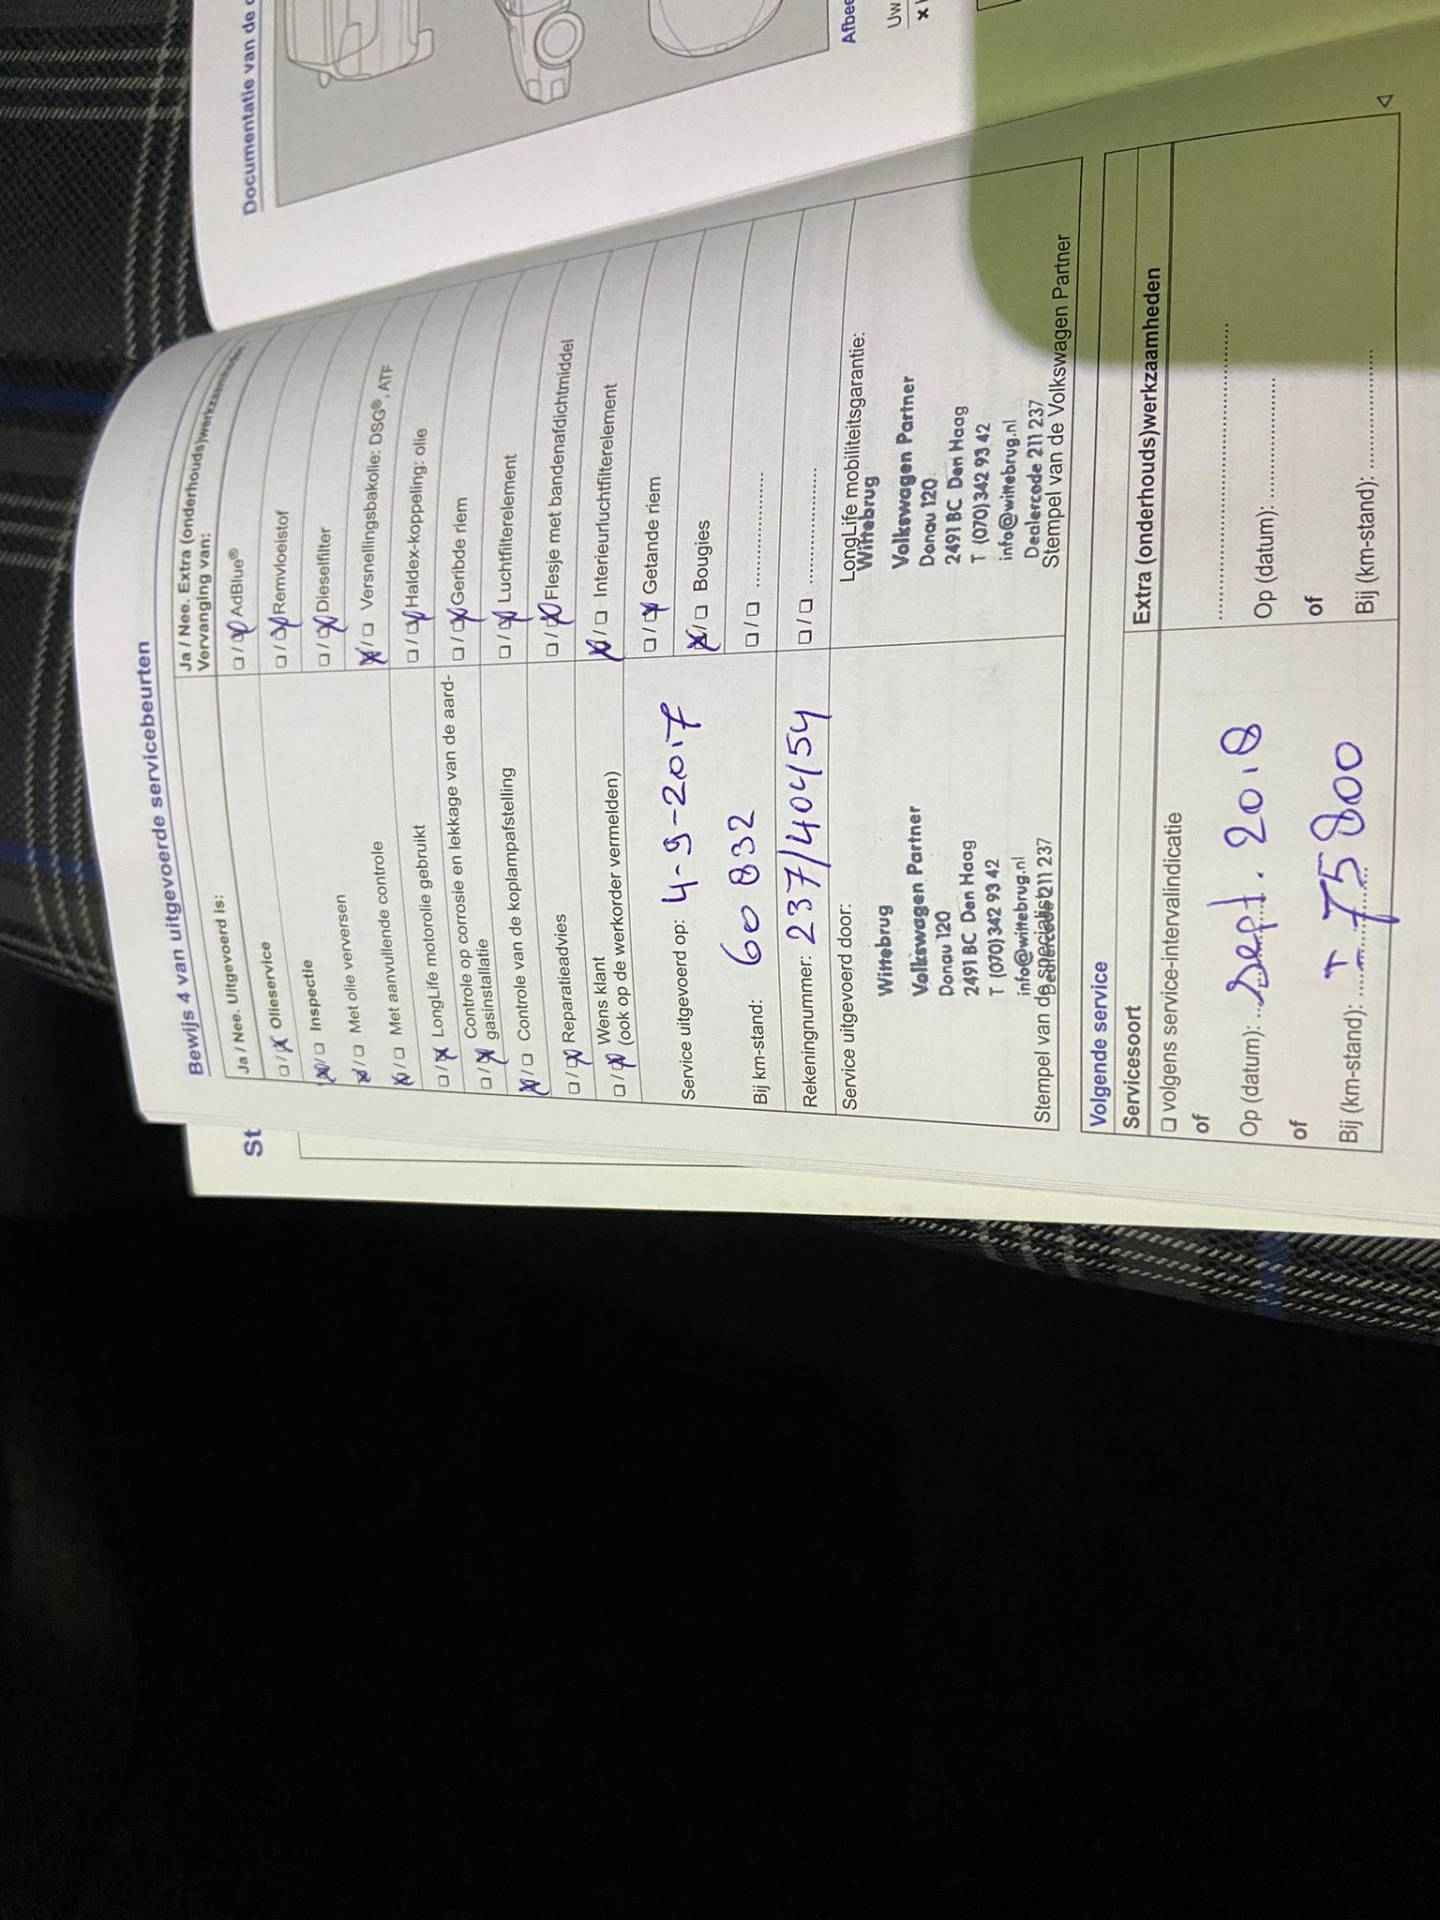 St
Bewijs 4 van uitgevoerde servicebeurten
Ja / Nee. Uitgevoerd is:
☐ / ☒ Olieservice
☒ / ☐ Inspectie
☒ / ☐ Met olie verversen
☒ / ☐ Met aanvullende controle
☐ / ☒ LongLife motorolie gebruikt
☐ / ☒ Controle op corrosie en lekkage van de aard-
gasinstallatie
☒ / ☐ Controle van de koplampafstelling
☐ / ☒ Reparatieadvies
☐ / ☒ Wens klant
(ook op de werkorder vermelden)
Service uitgevoerd op: 4-9-2017
Bij km-stand: 60 832
Rekeningnummer: 237/404154
Service uitgevoerd door:
Wittebrug
Volkswagen Partner
Donau 120
2491 BC Den Haag
T (070) 342 93 42
info@wittebrug.nl
Dealercode 211 237
Stempel van de specialist
Ja / Nee. Extra (onderhouds)werkzaamheden:
Vervanging van:
☐ / ☒ AdBlue®
☐ / ☒ Remvloeistof
☐ / ☒ Dieselfilter
☒ / ☐ Versnellingsbakolie: DSG®, ATF
☐ / ☒ Haldex-koppeling: olie
☐ / ☒ Geribde riem
☐ / ☒ Luchtfilterelement
☐ / ☒ Flesje met bandenafdichtmiddel
☒ / ☐ Interieurluchtfilterelement
☐ / ☒ Getande riem
☒ / ☐ Bougies
☐ / ☐ ....................
☐ / ☐ ....................
LongLife mobiliteitsgarantie:
Wittebrug
Volkswagen Partner
Donau 120
2491 BC Den Haag
T (070) 342 93 42
info@wittebrug.nl
Dealercode 211 237
Stempel van de Volkswagen Partner
Volgende service
Servicesoort
☐ volgens service-intervalindicatie
of
Op (datum): Sept. 2018
of
Bij (km-stand): ± 75800
Extra (onderhouds)werkzaamheden
....................
Op (datum): ....................
of
Bij (km-stand): ....................
Documentatie van de
Afbee
Uw
x